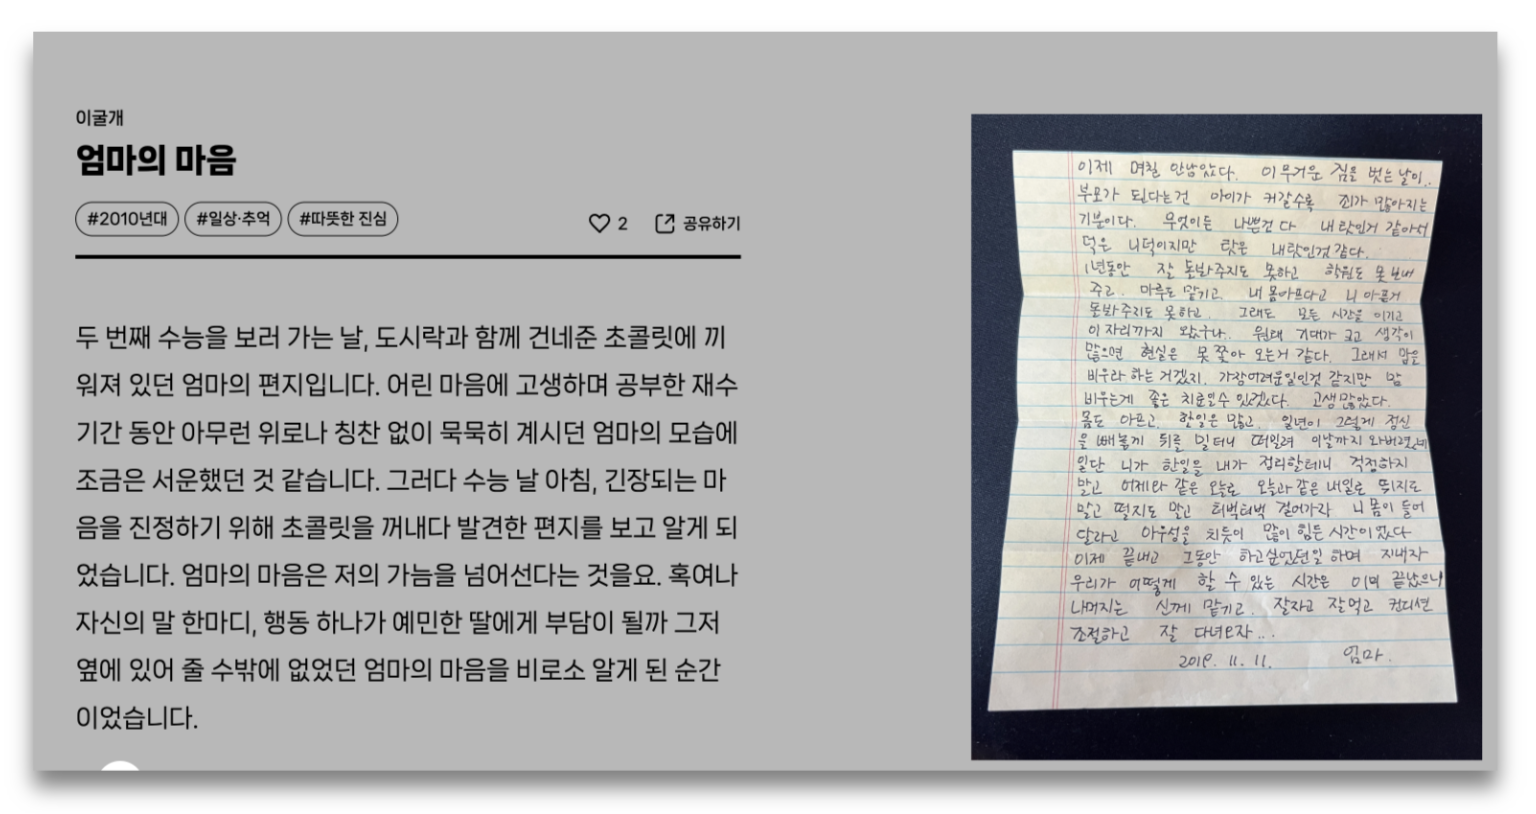 이굴개
엄마의 마음
#2010년대 #일상·추억 #따뜻한 진심
2 공유하기
두 번째 수능을 보러 가는 날, 도시락과 함께 건네준 초콜릿에 끼
워져 있던 엄마의 편지입니다. 어린 마음에 고생하며 공부한 재수
기간 동안 아무런 위로나 칭찬 없이 묵묵히 계시던 엄마의 모습에
조금은 서운했던 것 같습니다. 그러다 수능 날 아침, 긴장되는 마
음을 진정하기 위해 초콜릿을 꺼내다 발견한 편지를 보고 알게 되
었습니다. 엄마의 마음은 저의 가늠을 넘어선다는 것을요. 혹여나
자신의 말 한마디, 행동 하나가 예민한 딸에게 부담이 될까 그저
옆에 있어 줄 수밖에 없었던 엄마의 마음을 비로소 알게 된 순간
이었습니다.
이제 며칠 안남았다. 이 무거운 짐을 벗는 날이..
부모가 된다는건 아이가 커갈수록 죄가 많아지는
기분이다. 무엇이든 나쁜건 다 내 탓인거 같아서
덕은 니덕이지만 탓은 내탓인것같다.
1년동안 잘 돌봐주지도 못하고 학원도 못 보내
주고. 마루도 맡기고. 내 몸아프다고 니 아픈거
돌봐주지도 못하고. 그래도 모든 시간을 이기고
이 자리까지 왔구나. 원래 기대가 크고 생각이
많으면 현실은 못 쫓아 오는거 같다. 그래서 맘을
비우라 하는 거겠지. 가장어려운일인것 같지만 맘
비우는게 좋은 치료일수 있겠다. 고생많았다.
몸도 아프고. 할일은 많고. 일년이 그렇게 정신
을 빼놓게 뒤를 밀더니 떠밀려 이날까지 와버렸네
일단 니가 한일을 내가 정리할테니 걱정하지
말고 어제와 같은 오늘로 오늘과 같은 내일로 뛰지도
말고 떨지도 말고 터벅터벅 걸어가자 니 몸이 들어
달라고 아우성을 치듯이 많이 힘든 시간이었다
이제 끝내고 그동안 하고싶었던일 하며 지내자
우리가 어떻게 할 수 있는 시간은 이미 끝났으니
나머지는 신께 맡기고. 잘자고 잘먹고 컨디션
조절하고 잘 다녀오자..
2019. 11. 11. 엄마.